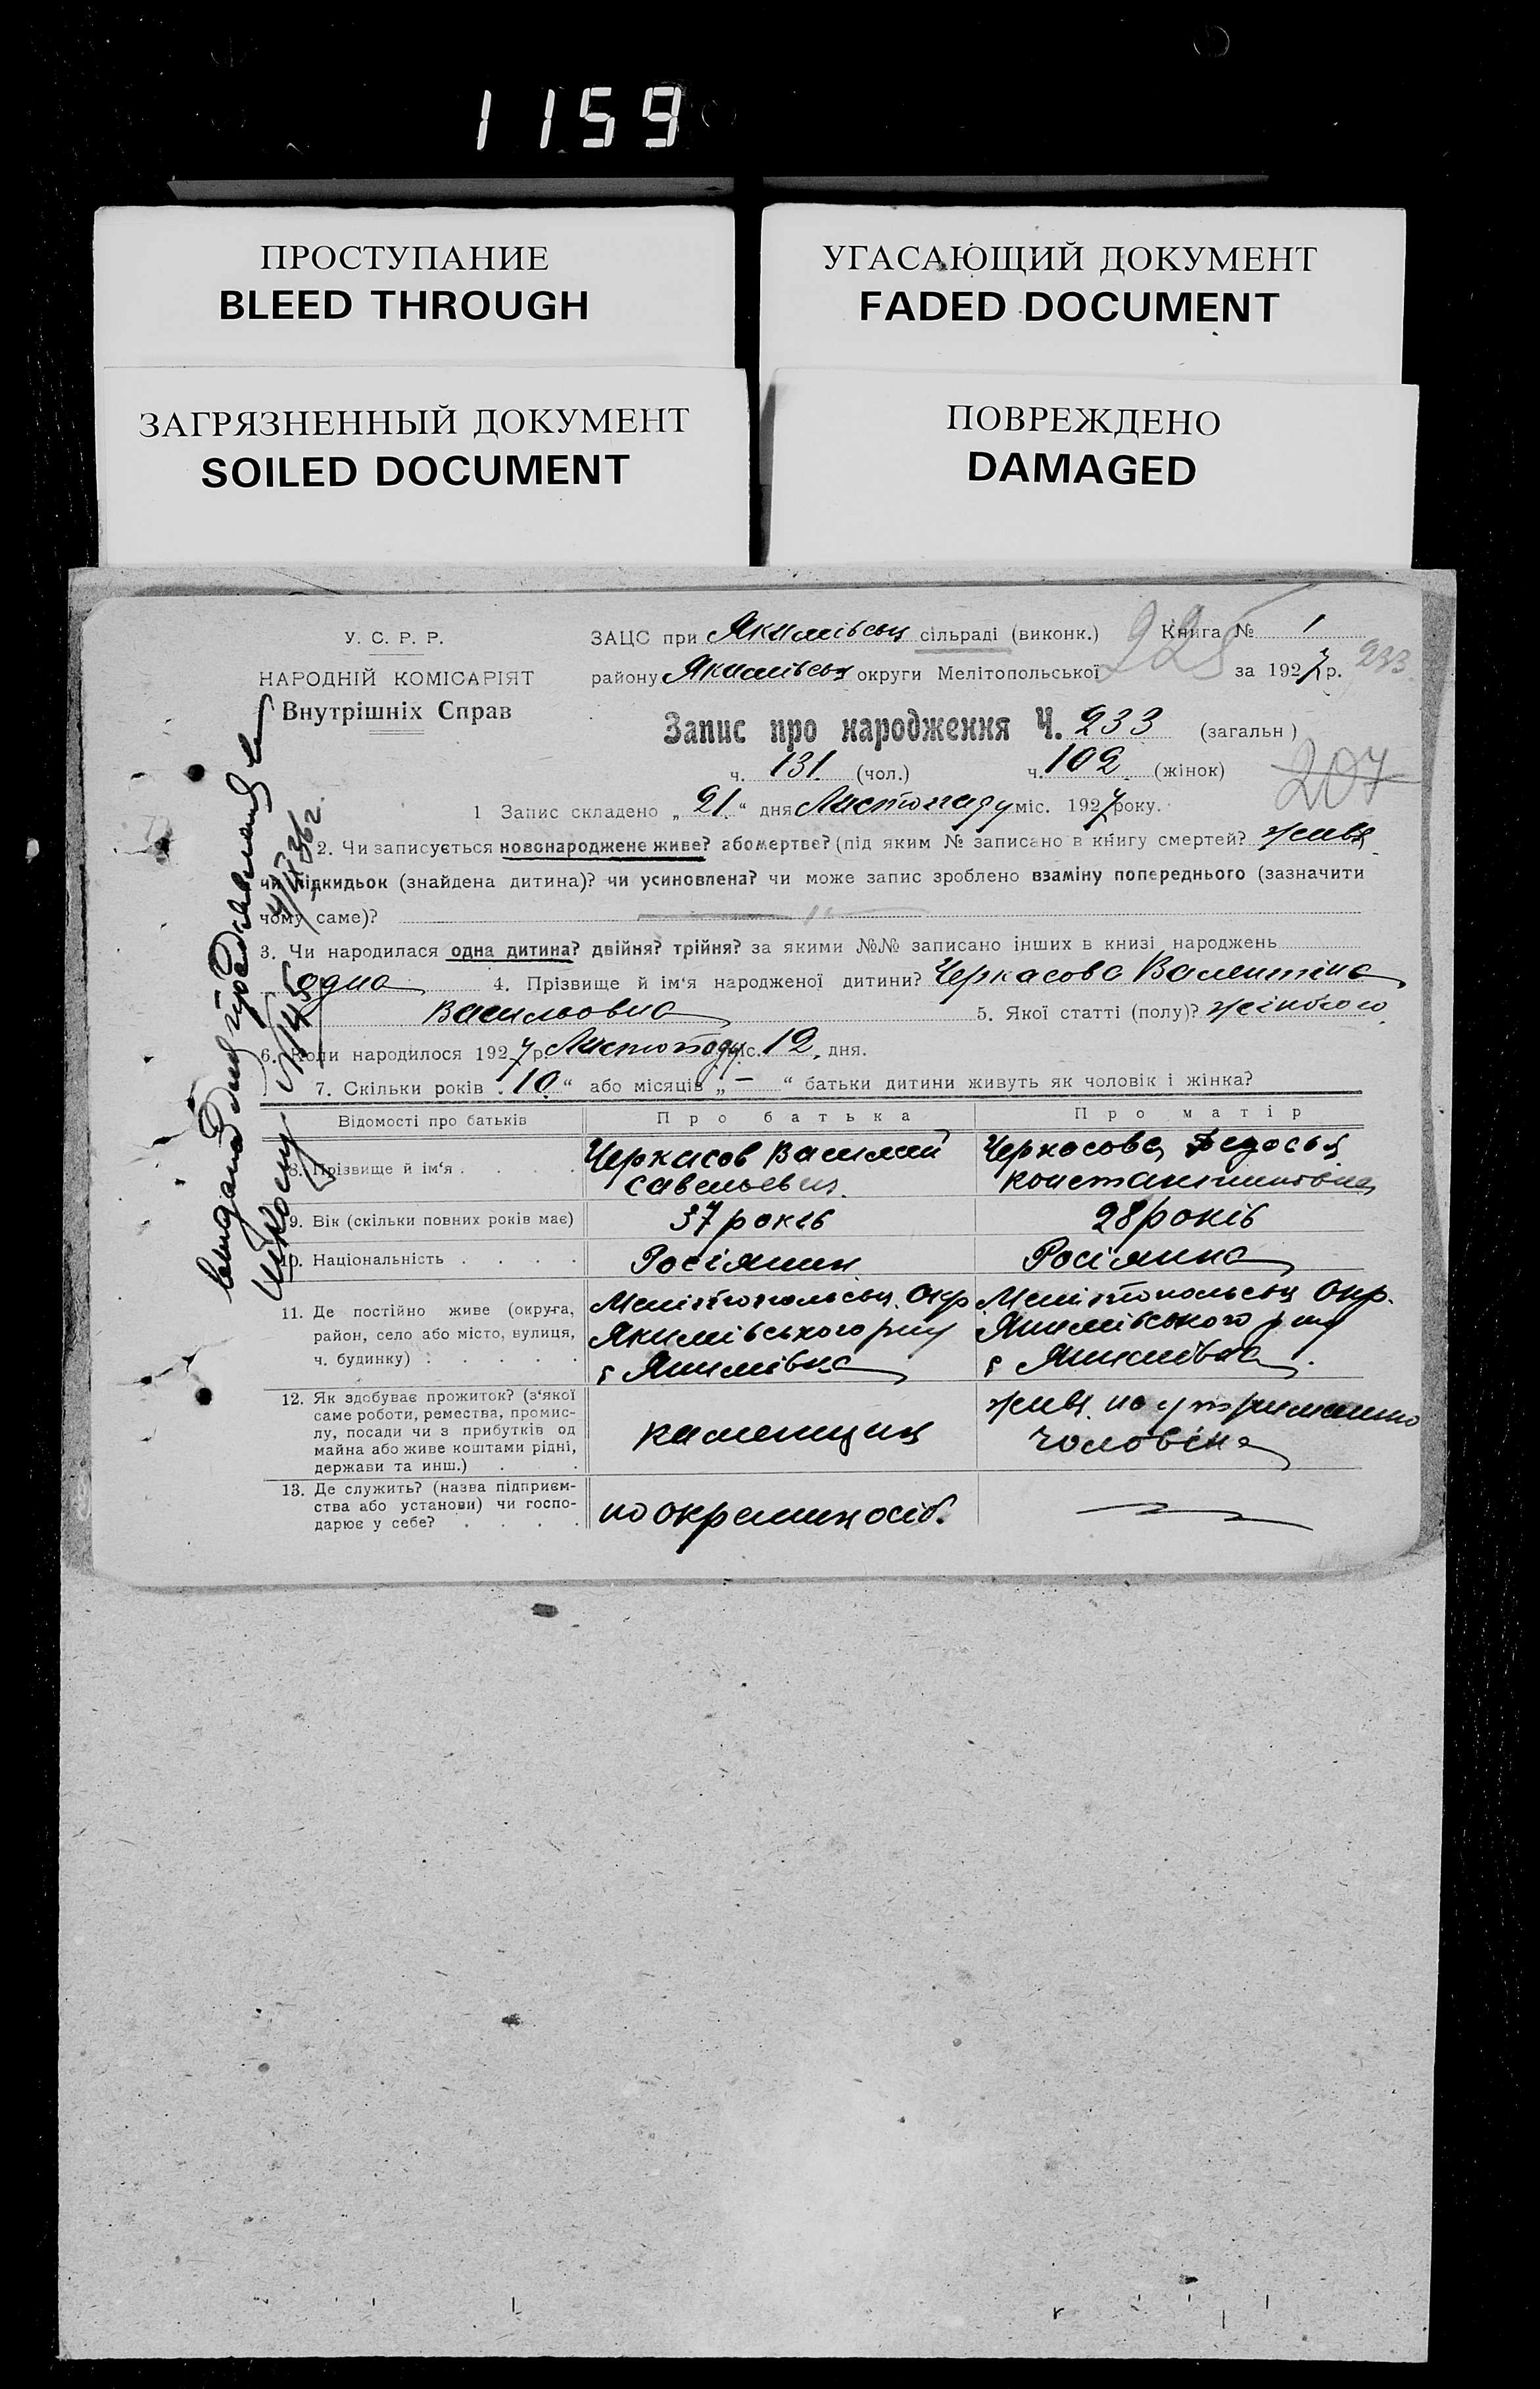 1159
ПРОСТУПАНИЕ
BLEED THROUGH
УГАСАЮЩИЙ ДОКУМЕНТ
FADED DOCUMENT
ЗАГРЯЗНЕННЫЙ ДОКУМЕНТ
SOILED DOCUMENT
ПОВРЕЖДЕНО
DAMAGED
У. С. Р. Р.
НАРОДНІЙ КОМІСАРІЯТ
Внутрішніх Справ
ЗАЦС при Якимівськ сільраді (виконк.) Книга № 1
району Якимівськ округи Мелітопольської за 1927 р.
225
233
Запис про народження Ч. 233 (загальн)
ч. 131 (чол.) ч. 102 (жінок)
207
1 Запис складено „21“ дня Листопаду міс. 1927 року.
2. Чи записується новонароджене живе? або мертве? (під яким № записано в книгу смертей? живе
чи підкидьок (знайдена дитина)? чи усиновлена? чи може запис зроблено взаміну попереднього (зазначити
чому саме)?
3. Чи народилася одна дитина? двійня? трійня? за якими №№ записано інших в книзі народжень
одна 4. Прізвище й ім‘я народженої дитини? Черкасова Валентіна
Васильовна 5. Якої статті (полу)? жіночого
6. Коли народилося 1927 р. Листопаду міс. 12 дня.
7. Скільки років „10“ або місяців „—“ батьки дитини живуть як чоловік і жінка?
Відомості про батьків Про батька Про матір
8. Прізвище й ім‘я . . . . Черкасов Василий Савельевич Черкасова Федосья Константиновна
9. Вік (скільки повних років має) 37 років 28 років
10. Національність . . . . Росіянин Росіянка
11. Де постійно живе (округа, Мелітопольськ. Окр Мелітопольськ Окр.
район, село або місто, вулиця, Якимівського р-ну Якимівського р-ну
ч. будинку) . . . . . с Якимівка с Якимівка
12. Як здобуває прожиток? (з‘якої
саме роботи, ремества, промис-
лу, посади чи з прибутків од
майна або живе коштами рідні,
держави та инш.) . . . каменщик живе на утриманню чоловіка
13. Де служить? (назва підприєм-
ства або установи) чи госпо-
дарює у себе? . . . . по окремих осіб.